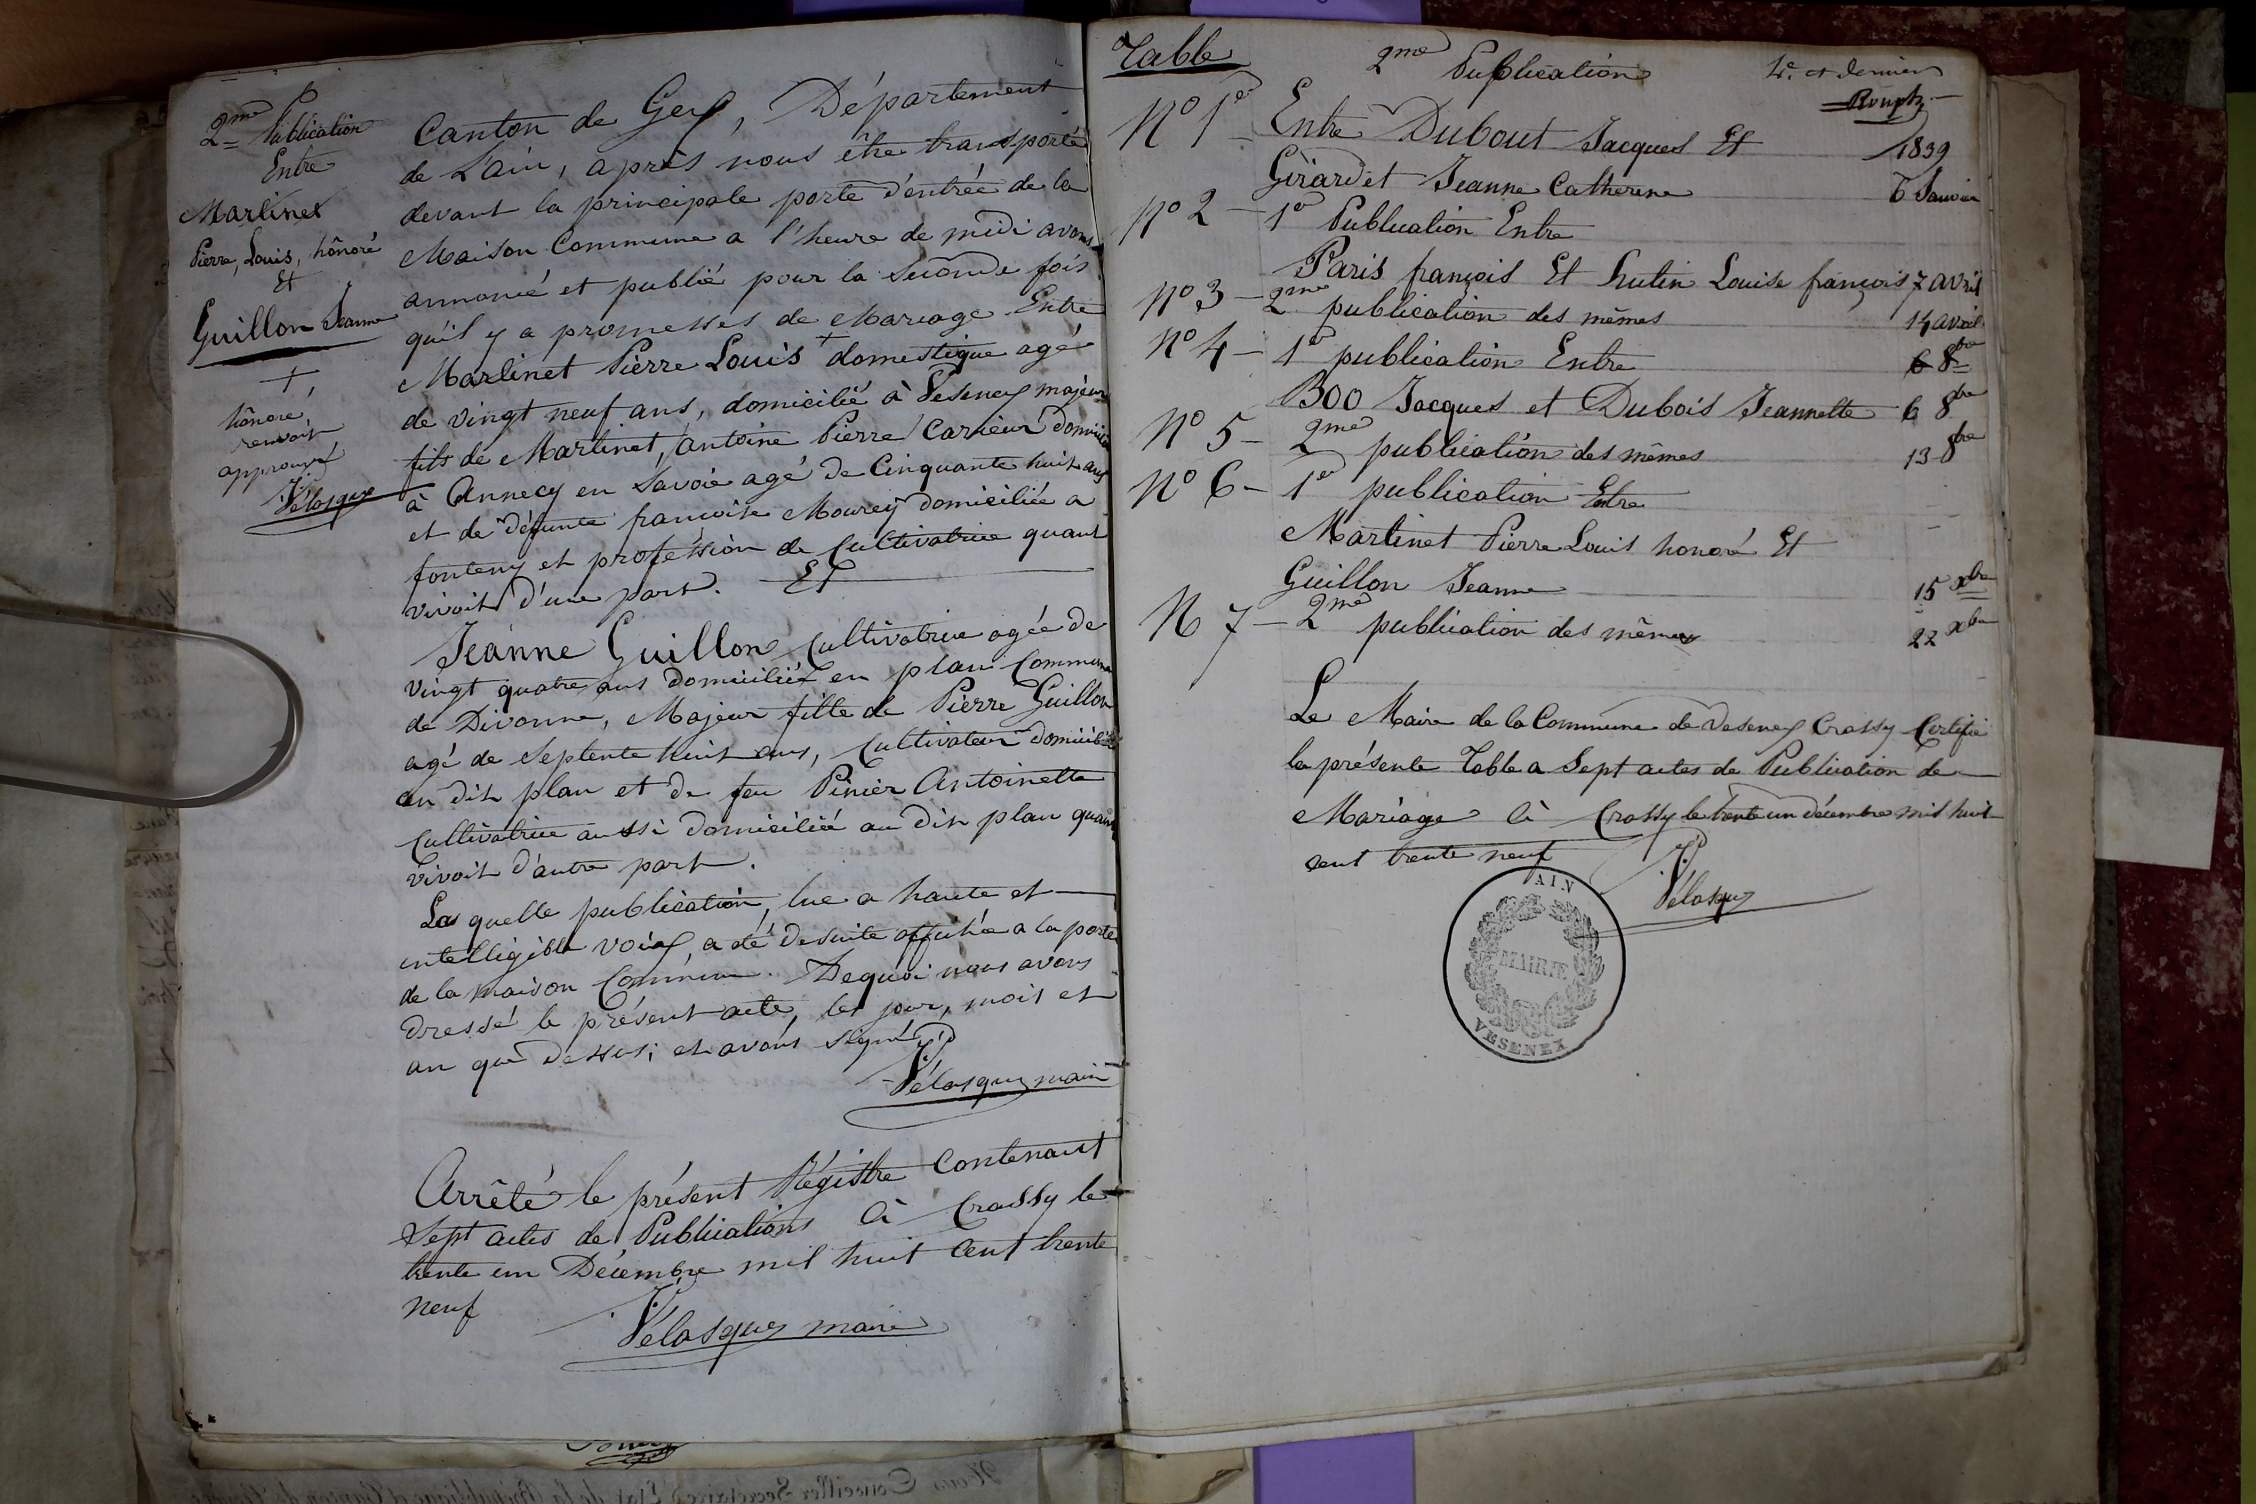 2me Publication
Entre
Martinet
Pierre, Louis, hônoré
Et
Guillon Jeanne
+
hônoré,
renvoit
approuvé
Vélasquez
Canton de Gex, Département
de L'ain, après nous être transporté
devant la principale porte d'entrée de la
Maison Commune a l'heure de midi avons
annoncé et publié pour la Seconde fois
qu'il y a promesses de Mariage Entre
Martinet Pierre Louis + domestique agé
de vingt neuf ans, domicilié à Vesenex majeur
fils de Martinet, antoine Pierre Carieur Domicilié
à Annecy en Savoie agé de Cinquante huit ans
et de défunte françoise Mourey domiciliée a
fonteny et profession de Cultivatrice quant
vivoit d'une part. ET
Jeanne Guillon Cultivatrice agée de
vingt quatre ans domiciliée en plan Commune
de Divonne, Majeur fille de Pierre Guillon
agé de Septente huit ans, Cultivateur domicilié
au dit plan et de feu Pinier Antoinette
Cultivatrice aussi domiciliée au dit plan quant
vivoit d'autre part.
La quelle publication, lue a haute et
intelligible voix, a été desuite affichée a la porte
de la maison Commune. Dequoi nous avons
dressé le présent acte, les jour, mois et
an que dessus; et avons signé
Vélasquez maire
Arrêté le présent Régistre Contenant
Sept actes de Publications à Crassy le
trente un Décembre mil huit Cent trente
neuf
Vélasquez maire
Table
2me Publication
4e. et dernier
No 1er Entre Dubout Jacques Et 1839
Girardet Jeanne Catherine 6 Janvier
No 2 – 1er Publication Entre
Paris françois Et hutin Louise françoise 7 avril
No 3 – 2me publication des mêmes 14 avril
No 4 – 1er publication Entre 6 8bre
BOO Jacques et Dubois Jeannette 6 8bre
No 5 – 2me publication des mêmes 13 8bre
No 6 – 1er publication Entre
Martinet Pierre Louis honoré Et
Guillon Jeanne 15 xbre
N 7 – 2me publication des mêmes 22 xbre
Le Maire de la Commune de Vesenex Crassy Certifie
la présente Table a Sept actes de Publication de
Mariage à Crassy le trente un décembre mil huit
cent trente neuf
Vélasquez
AIN
MAIRIE
VESENEX